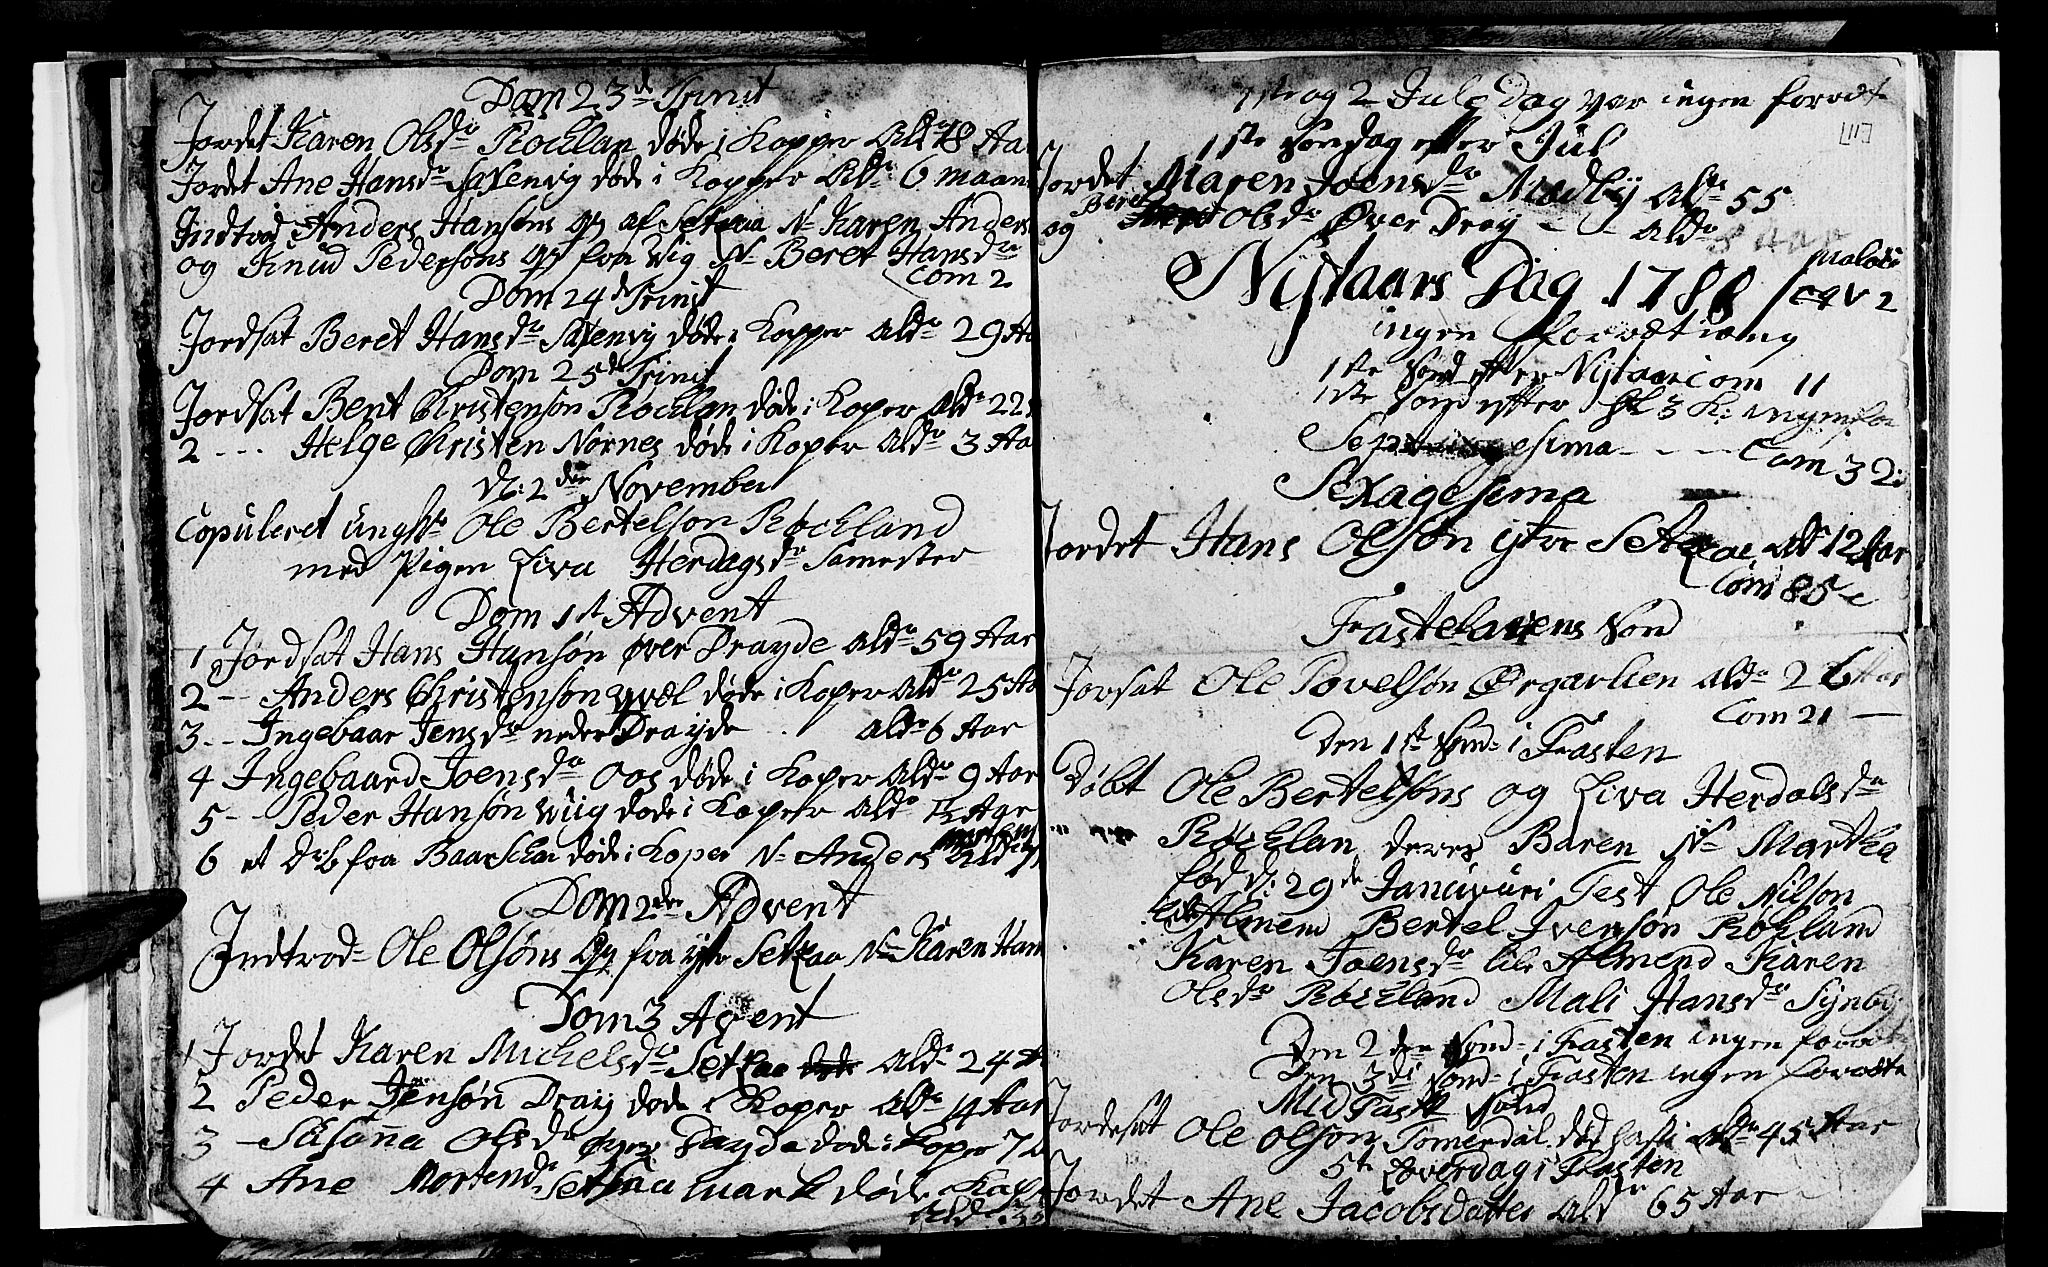 Dom 23de Trinit
Jordet Karen Olsdr Rochlan døde i Kopper Aldr 18 Aa
Jordet Ane Hansdr Saxenvig døde i Kopper Aldr 6 maan
Indtrod Anders Hansøns af Setraa N: Karen Anders
og Knud Pedersøns fra Vig N: Beret Hansdr
Com 2
Dom 24de Trinit
Jordsat Beret Hansdr Saxenvig døde i Kopper Aldr 29 Aa
Dom 25de Trinit
Jordsat Bent Christensøn Rochlan døde i Koper Aldr 22
2 --- Helge Christen Nornes døde i Koper Aldr 3 Aa
D: 2den November
Copuleret Ole Bertelsøn Røckland
med Pigen Liva Herdagsdr Sanester
Dom 1st Advent
1 Jordsat Hans Hansøn øver Drayde Aldr 59 Aar
2 -- Anders Christensøn døde i Koper Aldr 25 Aa
3 -- Ingebaar Jensdr neder Drayde Aldr 6 Aar
4 Ingebaard Joensdr Oos døde i Koper Aldr 9 Aar
5 -- Peder Hansøn Wiig døde i Koper Aldr Aar
6 et fra døde i Koper N: Anders
Dom 2den Advent
Indtrod- Ole Olsøns fra ytre Setraa N: Karen Han
Dom 3 Advent
1 Jordet Karen Michelsdr Setraa Aldr 24
2 Peder Jensøn Dray døde i Koper Aldr 14 Aar
3 - Susanna Olsdr øver Drayde døde i Koper 7
4 Ane Mortensdr Setraa mark døde Kop
Aldr 3
1ste og 2 Juledag var ingen forret
[11]
1ste Søndag efter Jul
Jordet Maren Joensdr Medby Aldr 55
og Beret Olsdr Øver Dray - - Aldr
Nytaars Dag 1788
ingen forretning
1ste Sønd efter Nytaar com 11
1ste Sønd efter Hl 3 K: ingen for
Septuagesima - - - Com 32
Sexagesima
Jordet Hans Olsøn ytre Setraa Aldr 12 Aar
Com 85
Fastelavens Sønd
Jorsat Ole Povelsøn Ørgarlien Aldr 26 Aar
Com 21 -
Den 1st Sønd- i Fasten
Døbt Ole Bertelsøns og Liva Herdalsdr
Rochlan deres Baren N: Martha
fød d: 29de Januari Test Ole Nilsøn
Almend Bertel Ivensøn Røkland
Karen Joensdr lile Almend Karen
Olsdr Rockland Mali Hansdr
Den 2den Sønd- i Fasten ingen forret
Den 3di Sønd- i Fasten ingen forret
Mid Fast Sønd
Jordsat Ole Olsøn Tomerdal død hasti Aldr 45 Aar
5te Sverdag i Fasten
Jordet Ane Jacobsdatter Aldr 65 Aar